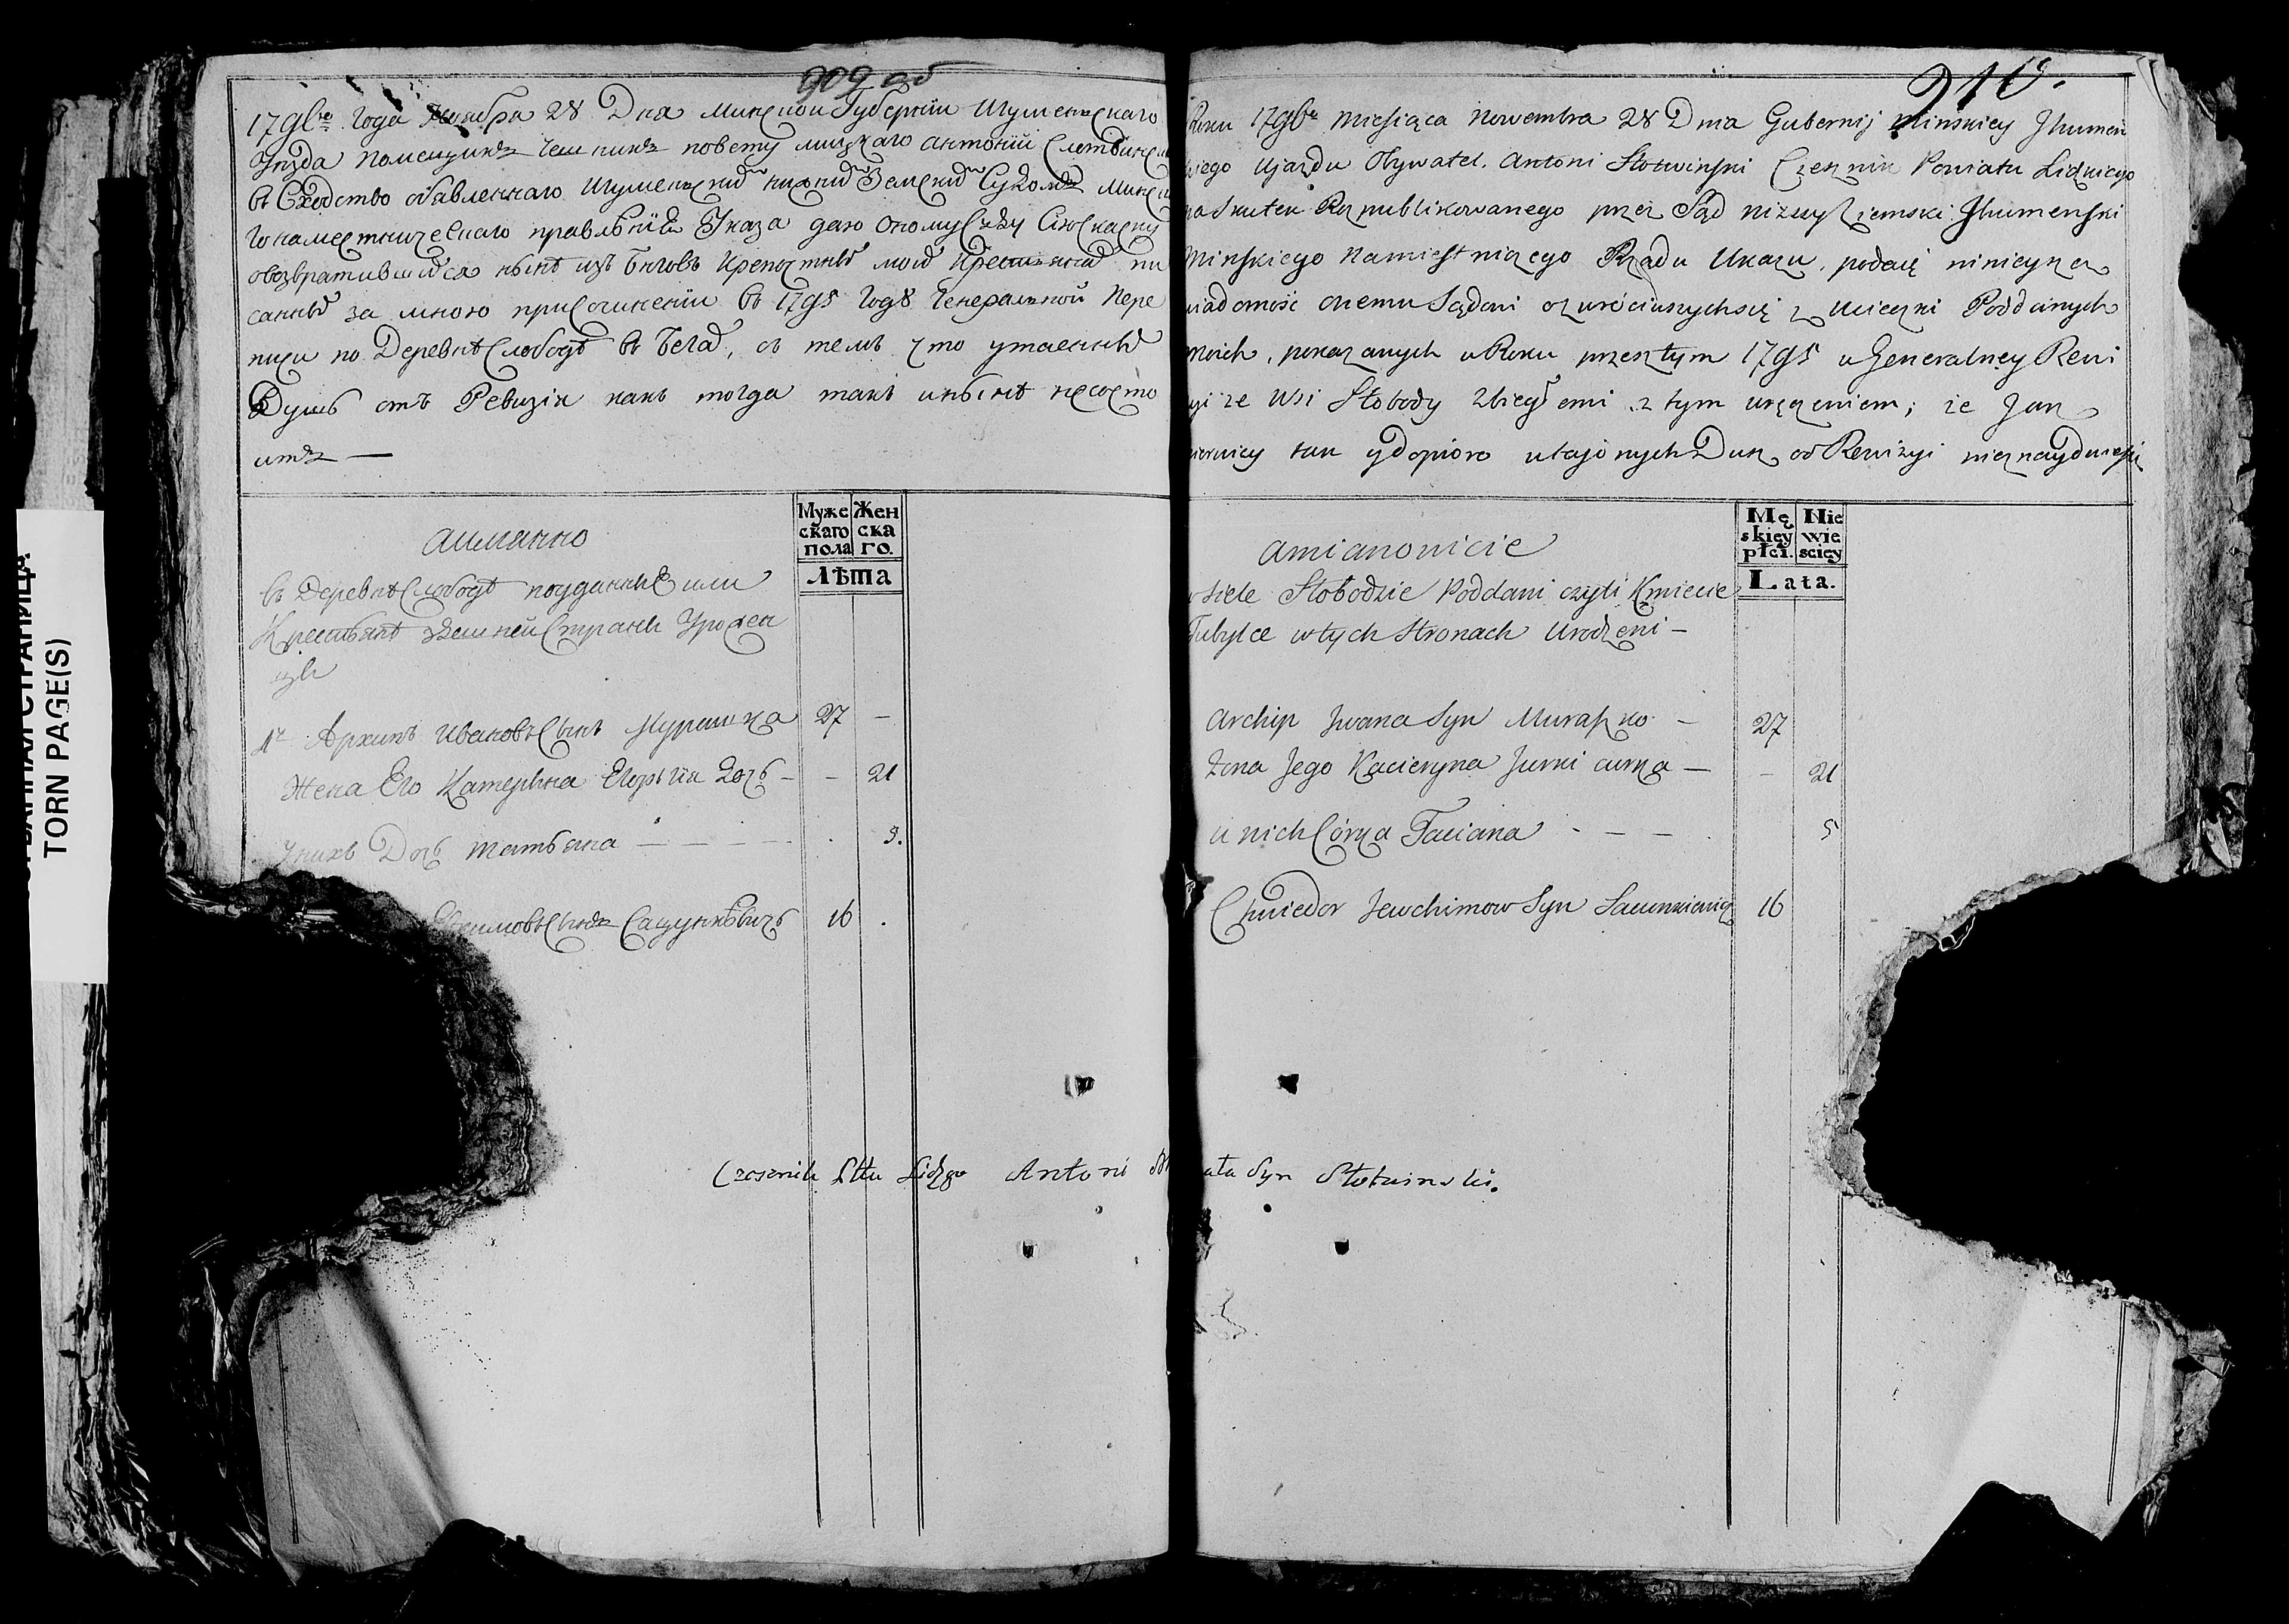 909 об
1796го Года Ноября 28 Дня Минской Губернии Игуменскаго
Уезда Помещикъ Чешникъ повету Лидзкаго Антоний
въ Сходство обявленнаго Игуменскимъ нижнимъ Земскимъ Судомъ
Гонаместническаго правления Указа даю оному Суду Сию скаску
овозвратившихся ныне изъ беговъ крепостныхъ моихъ крестьянахъ пи
санныхъ за мною присочинении въ 1795 Году Генеральной Пере
писи по Деревне Слободе въ бегахъ, съ темъ что утаенныхъ
Душъ отъ Ревизіи какъ тогда такъ иныне несосто
итъ —
аимянно
Муже
скаго
пола
Жен
ска
го.
Лѣта
въ Деревнѣ Слободѣ подданные или
Крестьяне здешней Страны Урожен
цы
Архипъ Ивановъ Сынъ Мурашка 27 —
Жена Его Катерина Дочь — — 21
Унихъ Дочь Татьяна — — — — 5.
Сынъ Сацункѣвичъ 16
Czesznik Pttu Lidzgo Antoni
910.
Roku 1796o Miesiąca Nowembra 28 Dnia Gubernij Minskiey Jhumeń
skiego Ujazdu Obywatel. Antoni Słotwinski Czesznik Powiatu Lidzkiego
na Skutek Rozpublikowanego przez Sąd nizszy Ziemski Jhumenski
Minskiego Namiestniczego Rządu Ukazu, podaię ninieyszą
wiadomość onemu Sądowi o zwróciwszychsię z Ucieczki Poddanych
Moich, pokazanych w Roku przeszłym 1795 w Generalney Rewi
zyi ze Wsi Słobody zbiegłemi z tym uręczeniem; że Jak
pierwiey tak y dopiéro utajonych Dusz od Rewizyi nieznayduiesię
amianowicie
Mę
skiey
płci.
Nie
wie
sciey
Lata.
w siele Słobodzie Poddani czyli Kmiecie
Tubylce wtych Stronach Urodzeni —
Archip Jwana Syn Muraszko — 27
Zona Jego Kacieryna Jurki curka — — 21
u nich Córka Taciana - — — 5
Chwiedor Jewchimow Syn Sacunkiewicz 16
Syn Słotwinski.
TORN PAGE(S)